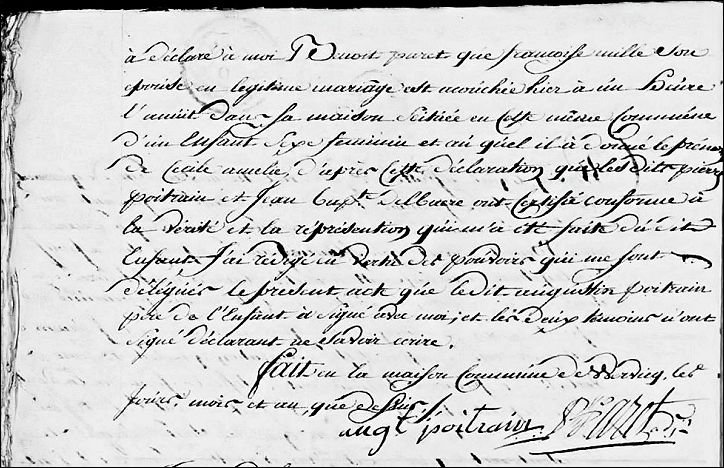 à déclaré à moi Benoit puret que francoise mille son
epouse en legitime mariage est acouchée hier à un heure
l'aunuit dans sa maison scituée en cette même Commune
d'un Enfant sexe feminin et au quel il à donné le préno
de Cecile amelie, d'après cette déclaration que les dits pierre
poitrain et Jean bap.t Delbaere ont Certifié conforme à
la vérité et la réprésention qui m'a été faite du dit
Enfant J'ai rédigé en vertu des pouvoirs qui me sont
délégués le présent acte que le dit augustin poitrain
père de l'Enfant à signé avec moi, et les deux temoins n'ont
signé déclarant ne savoir ecrire.
fait en la maison Commune de Wervicq, les
jours, mois et an que dessus
augt poitrain